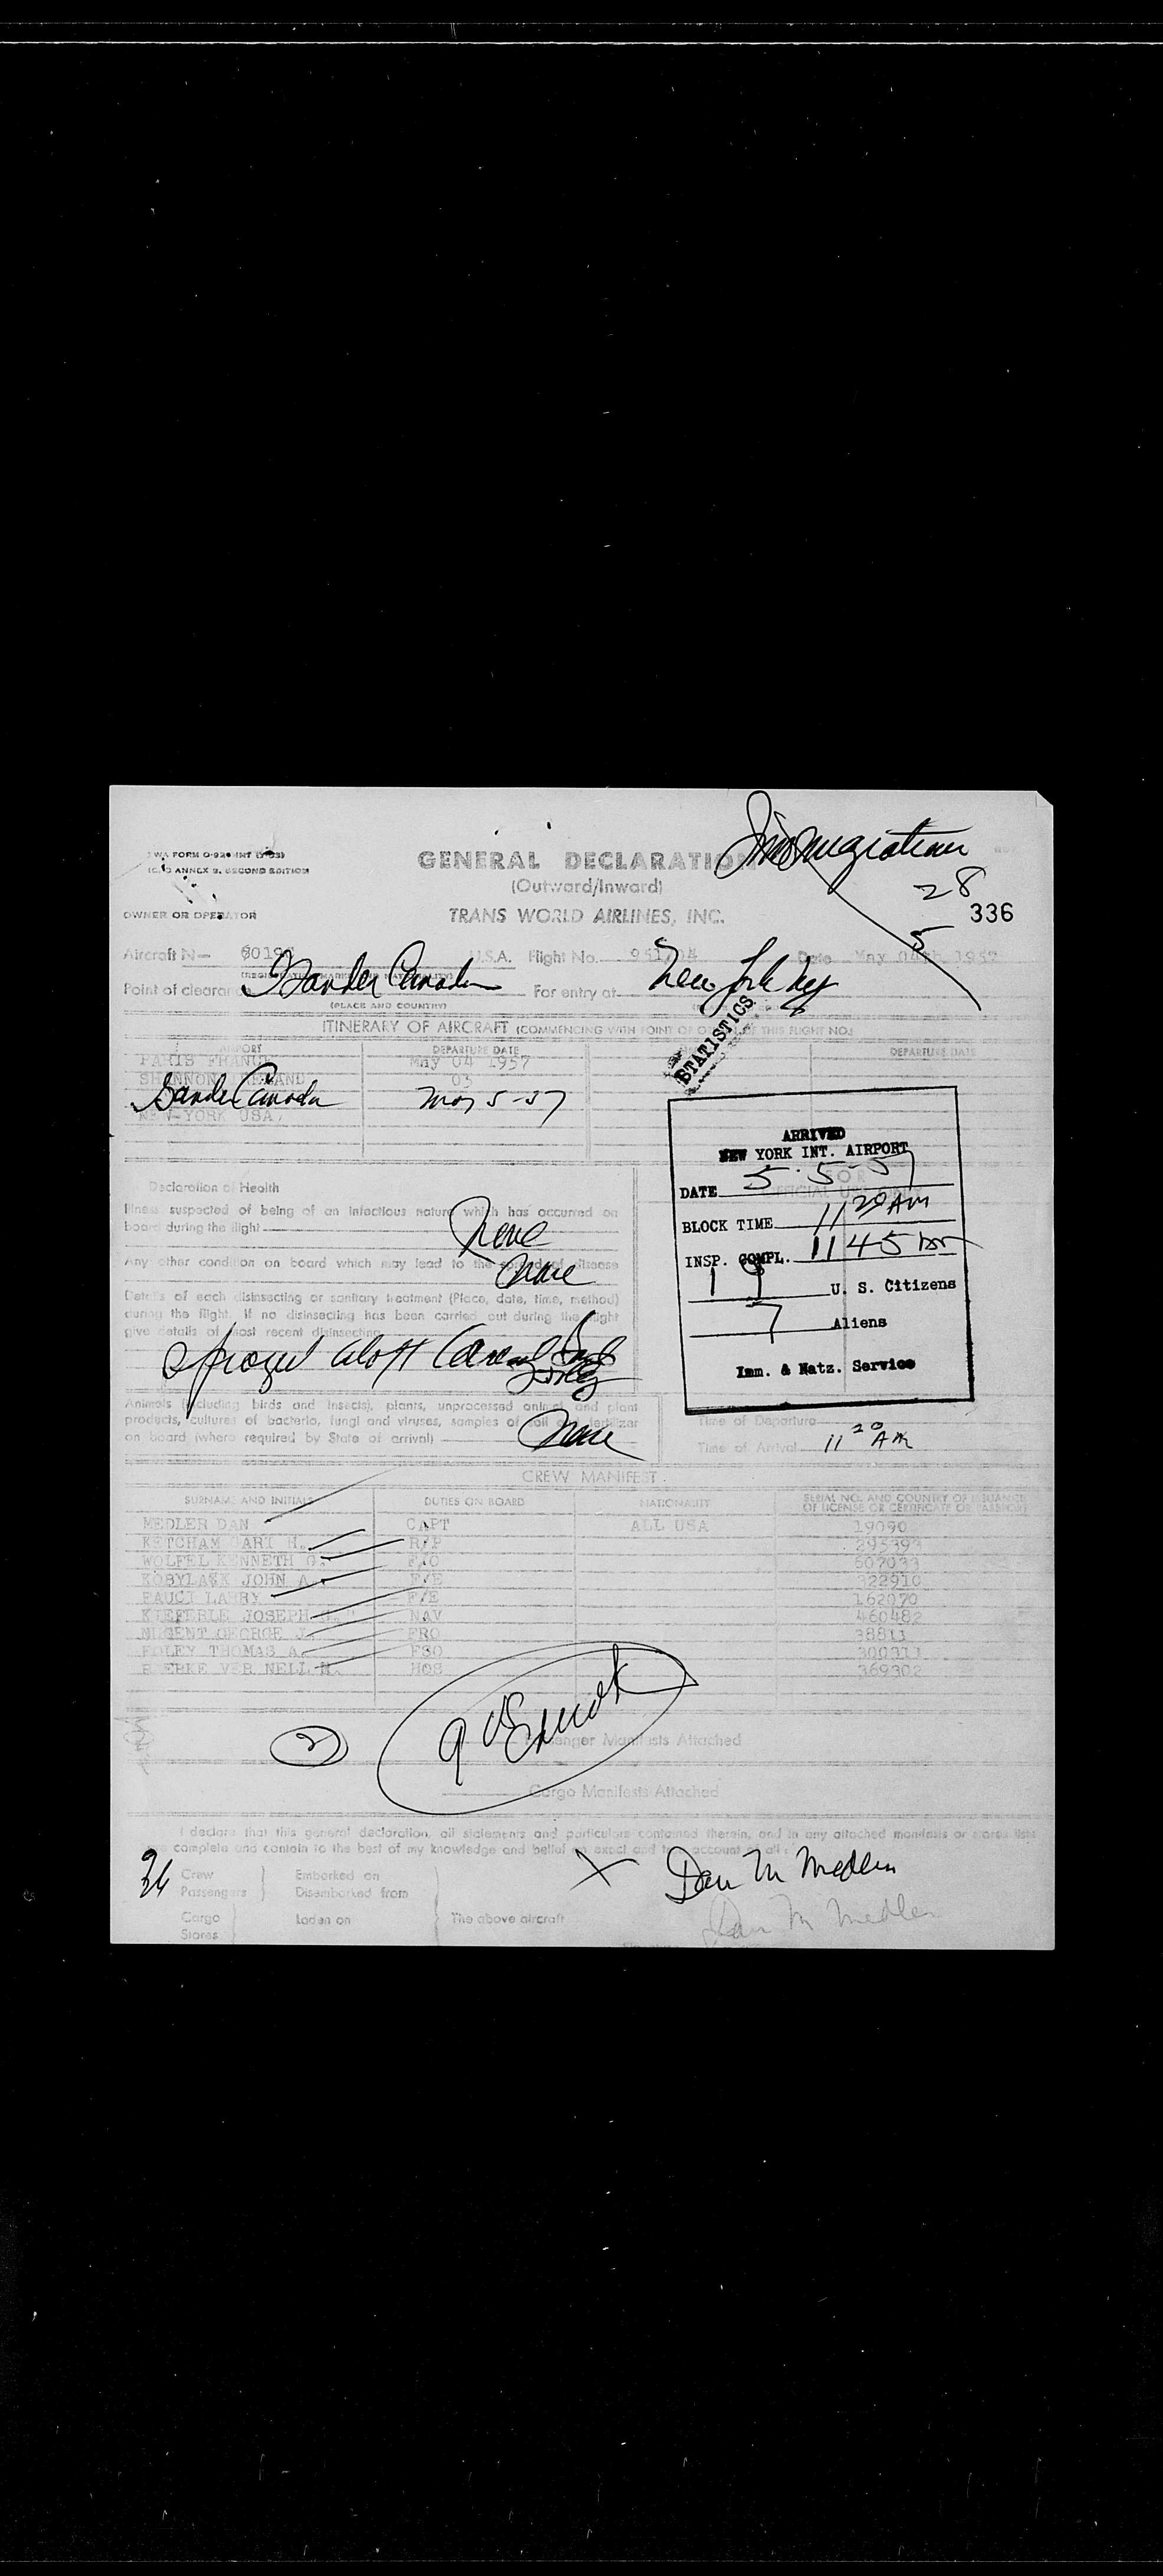 Immigration
TWA FORM O-924 INT
ICAO ANNEX 9, SECOND EDITION
GENERAL DECLARATION
(Outward/Inward)
28
336
OWNER OR OPERATOR
TRANS WORLD AIRLINES, INC.
5
Aircraft N— U.S.A. Flight No. 951/04 Date May 04th 1957
Point of clearance Gander Canada For entry at New York NY
(PLACE AND COUNTRY)
STATISTICS
ITINERARY OF AIRCRAFT (COMMENCING WITH POINT OF OF THIS FLIGHT NO.)
AIRPORT DEPARTURE DATE DEPARTURE DATE
PARIS FRANCE May 04 1957
SHANNON IRELAND 05
Gander Canada May 5-57
NEW-YORK USA
ARRIVED
NEW YORK INT. AIRPORT
DATE 5-5-57
BLOCK TIME 11 20 AM
INSP. COMPL. 11 45 am
19 U. S. Citizens
7 Aliens
Imm. & Natz. Service
Declaration of Health
Illness suspected of being of an infectious nature which has occurred on
board during the flight None
Any other condition on board which may lead to the spread of disease
None
Details of each disinsecting or sanitary treatment (Place, date, time, method)
during the flight. If no disinsecting has been carried out during the flight
give details of most recent disinsecting
sprayed aloft
Animals (including birds and insects), plants, unprocessed animal and plant
products, cultures of bacteria, fungi and viruses, samples of soil and fertilizer
on board (where required by State of arrival) None
Time of Departure
Time of Arrival 11 20 AM
CREW MANIFEST
SURNAME AND INITIALS DUTIES ON BOARD NATIONALITY SERIAL NO. AND COUNTRY OF ISSUANCE
OF LICENSE OR CERTIFICATE OR PASSPORT
MEDLER DAN CAPT ALL USA 19090
KETCHAM CART H. R/P 295393
WOLFEL KENNETH G. F/O 607033
KOBYLACK JOHN A. F/E 322910
FAUCI LARRY F/E 162070
KIEFERLE JOSEPH NAV 460482
NUGENT GEORGE J. FRO 38811
FOLEY THOMAS A. FSO 300311
VER NELL H. HOS 369302
2
9
Passenger Manifests Attached
Cargo Manifests Attached
I declare that this general declaration, all statements and particulars contained therein, and in any attached manifests or stores lists
complete and contain to the best of my knowledge and belief an exact and true account of all:
26
Crew
Passengers
Embarked on
Disembarked from
X Dan M Medler
Cargo
Stores
Laden on
The above aircraft
Dan M Medler